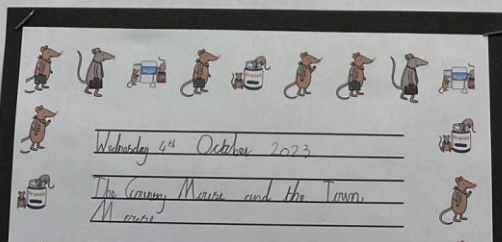 Wednesday 4th October 2023
The Country Mouse and the Town
Mouse